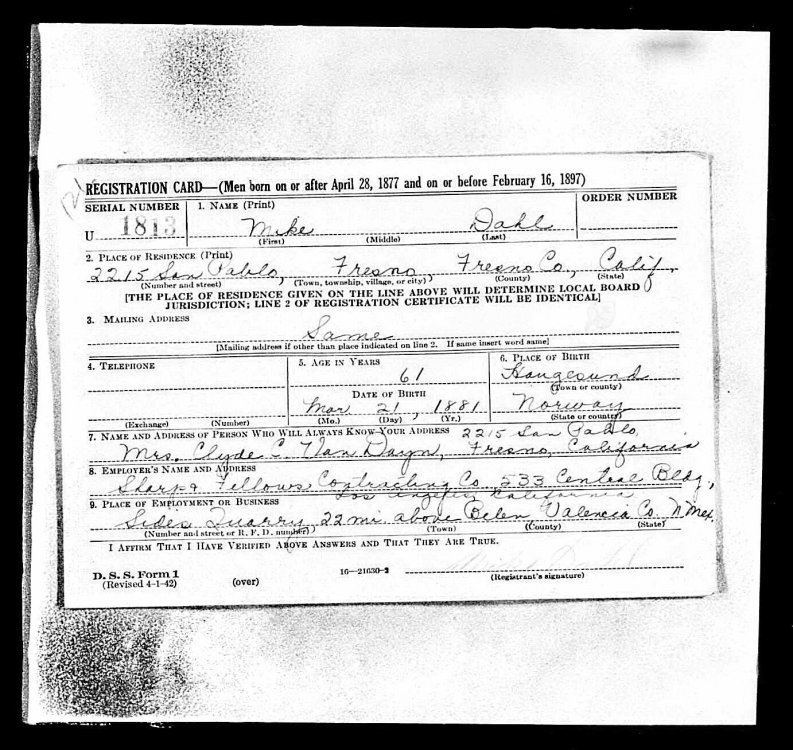 REGISTRATION CARD—(Men born on or after April 28, 1877 and on or before February 16, 1897)
SERIAL NUMBER 1. NAME (Print) ORDER NUMBER
U 1813 Mike Dahl
(First) (Middle) (Last)
2. PLACE OF RESIDENCE (Print)
2215 San Pablo, Fresno, Fresno Co., Calif.
(Number and street) (Town, township, village, or city) (County) (State)
[THE PLACE OF RESIDENCE GIVEN ON THE LINE ABOVE WILL DETERMINE LOCAL BOARD
JURISDICTION; LINE 2 OF REGISTRATION CERTIFICATE WILL BE IDENTICAL]
3. MAILING ADDRESS
Same
[Mailing address if other than place indicated on line 2. If same insert word same]
4. TELEPHONE 5. AGE IN YEARS 6. PLACE OF BIRTH
61 Haugesund
(Town or county)
DATE OF BIRTH
Mar 21, 1881 Norway
(Exchange) (Number) (Mo.) (Day) (Yr.) (State or country)
7. NAME AND ADDRESS OF PERSON WHO WILL ALWAYS KNOW YOUR ADDRESS 2215 San Pablo,
Mrs. Clyde C. Van Dayn, Fresno, California
8. EMPLOYER'S NAME AND ADDRESS
Sharp & Fellows Contracting Co. 533 Central Bldg,
Los Angeles, California
9. PLACE OF EMPLOYMENT OR BUSINESS
Sides Quarry 22 mi. above Belen Valencia Co. N Mex.
(Number and street or R. F. D. number) (Town) (County) (State)
I AFFIRM THAT I HAVE VERIFIED ABOVE ANSWERS AND THAT THEY ARE TRUE.
D. S. S. Form 1
(Revised 4-1-42) (over) 16—21630-2 (Registrant's signature)